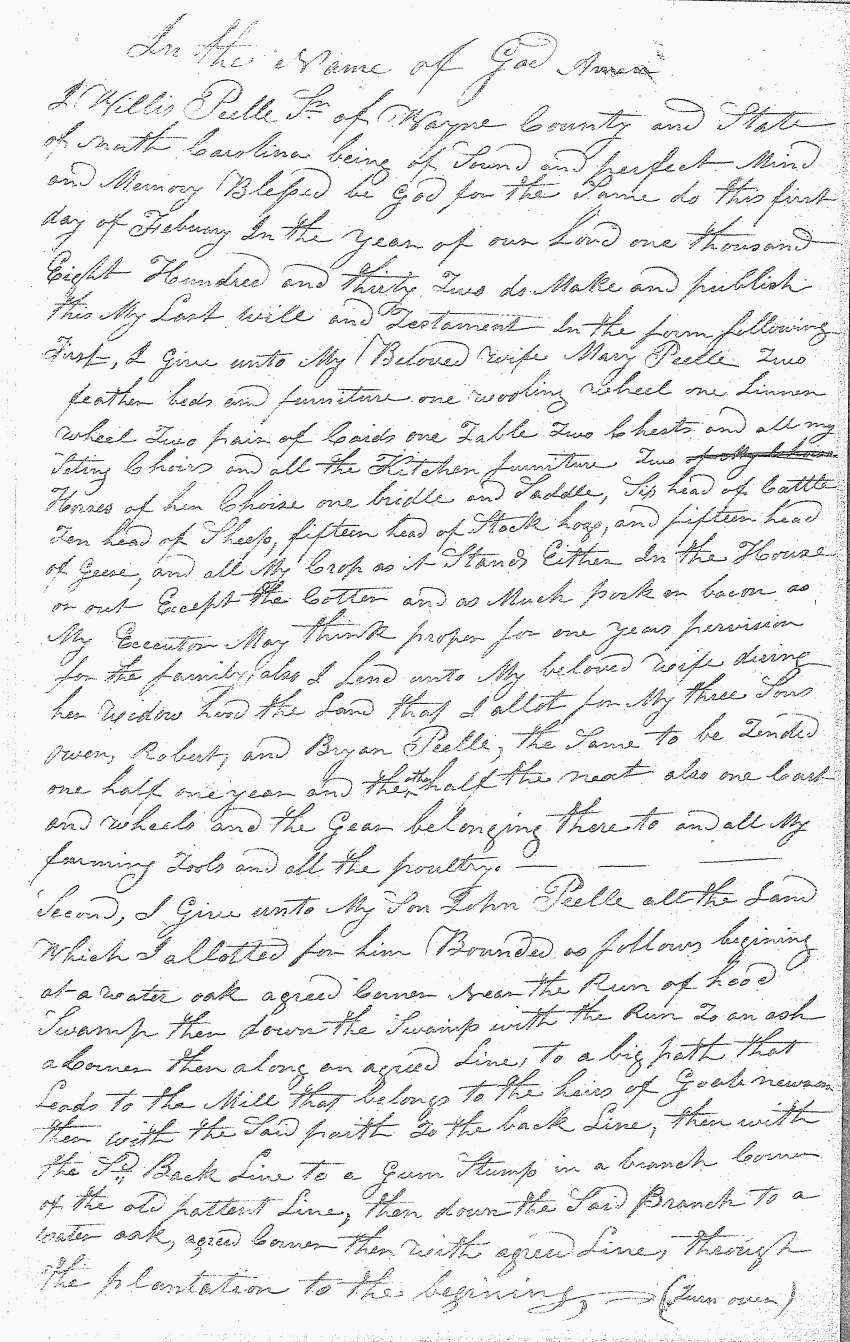 In the Name of God Amen
I Willis Peelle Sr. of Wayne County and State
of North Carolina being of Sound and perfect Mind
and Memory Blessed be God for the Same do this first
day of Febuary In the year of our Lord one thousand
Eight Hundred and thirty Two do Make and publish
this My Last will and Testament In the form following
First, I Give unto My Beloved wife Mary Peelle Two
feather beds and furniture one wooling wheel one Linnen
wheel Two pair of Cards one Table Two Chests and all my
Seting Chairs and all the Kitchen furniture Two
Horses of her Choise one bridle and Saddle, Six head of Cattle
Ten head of Sheep, fifteen head of Stock hogs, and fifteen head
of Geese, and all My Crop as it Stands Either In the House
or out Except the Cotten and as Much pork or bacon as
My Executor May think proper for one years pervision
for the family, also I Lend unto My beloved wife during
her widow hood the Land that I allot for My three Sons
Owen, Robert, and Bryan Peelle, the Same to be Tended
one half one year and the other half the next also one Cart
and wheels and the Gear belonging there to and all My
farming Tools and all the poultry. — — —
Second, I Give unto My Son John Peelle all the Land
Which I allotted for him Bounded as follows begining
at a water oak agreed Corner Near the Run of hood
Swamp then down the Swamp with the Run To an ash
a Corner then along an agreed Line, to a big path that
Leads to the Mill that belongs to the heirs of
then with the Said paith To the back Line, then with
the Sd. Back Line to a Gum Stump in a branch Corner
of the old pattent Line, then down the Said Branch to a
water oak, agreed Corner then with agreed Line, through
the plantation to the begining, — (Turn over)